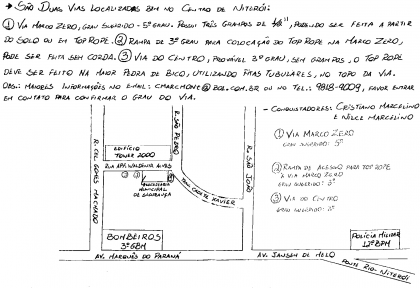 → SÃO DUAS VIAS LOCALIZADAS BEM NO CENTRO DE NITERÓI:
① VIA MARCO ZERO, GRAU SUGERIDO - 5º GRAU. POSSUI TRÊS GRAMPOS DE 1/2", PODENDO SER FEITA A PARTIR
DO SOLO OU EM TOP ROPE. ② RAMPA DE 3º GRAU PARA COLOCAÇÃO DO TOP ROPE NA MARCO ZERO,
PODE SER FEITA SEM CORDA. ③ VIA DO CENTRO, PROVÁVEL 3º GRAU, SEM GRAMPOS, O TOP ROPE
DEVE SER FEITO NA MAIOR PEDRA DE BICO, UTILIZANDO FITAS TUBULARES, NO TOPO DA VIA.
OBS: MAIORES INFORMAÇÕES NO E-MAIL: CMARCHONE@BOL.COM.BR OU NO TEL: 9818-4009, FAVOR ENTRAR
EM CONTATO PARA CONFIRMAR O GRAU DO VIA.
- CONQUISTADORES: CRISTIANO MARCELINO
E NILCE MARCELINO
① VIA MARCO ZERO
GRAU SUGERIDO: 5º
② RAMPA DE ACESSO PARA TOP ROPE
À VIA MARCO ZERO
GRAU SUGERIDO: 3º
③ VIA DO CENTRO
GRAU SUGERIDO: 3º
R. CEL GOMES MACHADO
EDIFÍCIO
TOWER 2000
RUA
① ② ③
MUNICIPAL
DE SEGURANÇA
R. SÃO PEDRO
XAVIER
R. SÃO JOÃO
BOMBEIROS
3º GBM
POLÍCIA MILITAR
12º BPM
AV. MARQUÊS DO PARANÁ
AV. JANSEN DE MELO
PONTE RIO-NITERÓI